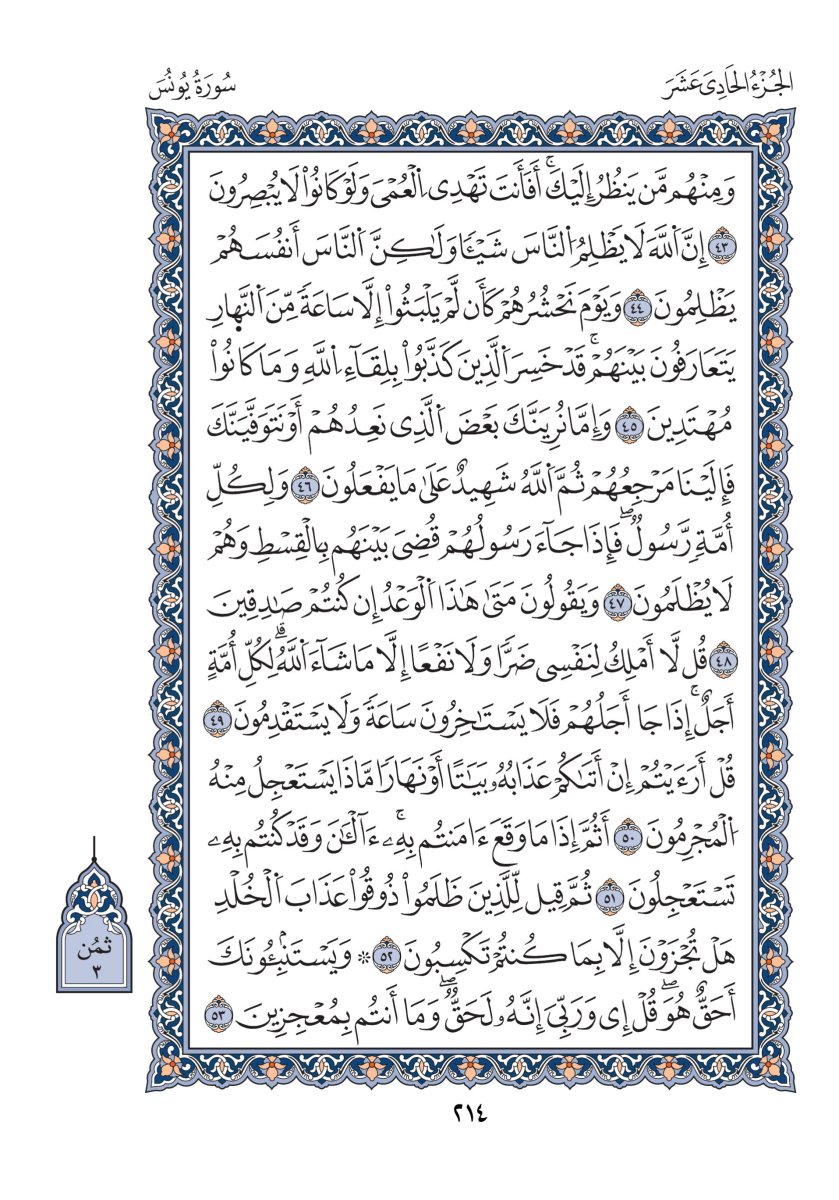 الجُزْءُ الحَادِىَ عَشَرَ
سُورَةُ يُونُسَ
وَمِنْهُم مَّن يَنظُرُ إِلَيْكَۚ أَفَأَنتَ تَهْدِى اِ۬لْعُمْىَ وَلَوْ كَانُواْ لَا يُبْصِرُونَ
٤٣ إِنَّ اَ۬للَّهَ لَا يَظْلِمُ اُ۬لنَّاسَ شَيْـًٔا وَلَٰكِنَّ اَ۬لنَّاسَ أَنفُسَهُمْ
يَظْلِمُونَ ٤٤ وَيَوْمَ نَحْشُرُهُمْ كَأَن لَّمْ يَلْبَثُواْ إِلَّا سَاعَةً مِّنَ اَ۬لنَّهارِ
يَتَعَارَفُونَ بَيْنَهُمْۚ قَدْ خَسِرَ اَ۬لَّذِينَ كَذَّبُواْ بِلِقَآءِ اِ۬للَّهِ وَمَا كَانُواْ
مُهْتَدِينَ ٤٥ وَإِمَّا نُرِيَنَّكَ بَعْضَ اَ۬لَّذِى نَعِدُهُمْ أَوْ نَتَوَفَّيَنَّكَ
فَإِلَيْنَا مَرْجِعُهُمْ ثُمَّ اَ۬للَّهُ شَهِيدٌ عَلَىٰ مَا يَفْعَلُونَ ٤٦ وَلِكُلِّ
أُمَّةٍ رَّسُولٌۖ فَإِذَا جَآءَ رَسُولُهُمْ قُضِىَ بَيْنَهُم بِالْقِسْطِ وَهُمْ
لَا يُظْلَمُونَ ٤٧ وَيَقُولُونَ مَتَىٰ هَٰذَا اَ۬لْوَعْدُ إِن كُنتُمْ صَٰدِقِينَ
٤٨ قُل لَّا أَمْلِكُ لِنَفْسِى ضَرًّا وَلَا نَفْعًا إِلَّا مَا شَآءَ اَ۬للَّهُۗ لِكُلِّ أُمَّةٍ
أَجَلٌۚ إِذَا جَا أَجَلُهُمْ فَلَا يَسْتَـْٔخِرُونَ سَاعَةً وَلَا يَسْتَقْدِمُونَ ٤٩
قُلْ أَرَءَيْتُمْ إِنْ أَتَىٰكُمْ عَذَابُهُۥ بَيَٰتًا أَوْ نَهَارًا مَّاذَا يَسْتَعْجِلُ مِنْهُ
اُ۬لْمُجْرِمُونَ ٥٠ أَثُمَّ إِذَا مَا وَقَعَ ءَامَنتُم بِهِۦۚ ءَآلْـَٰٔنَ وَقَدْ كُنتُم بِهِۦ
تَسْتَعْجِلُونَ ٥١ ثُمَّ قِيلَ لِلَّذِينَ ظَلَمُواْ ذُوقُواْ عَذَابَ اَ۬لْخُلْدِ
هَلْ تُجْزَوْنَ إِلَّا بِمَا كُنتُمْ تَكْسِبُونَ ٥٢ ۞ وَيَسْتَنۢبِـُٔونَكَ
أَحَقٌّ هُوَۖ قُلْ إِى وَرَبِّىَ إِنَّهُۥ لَحَقٌّۖ وَمَا أَنتُم بِمُعْجِزِينَ ٥٣
ثمُن
٣
٢١٤